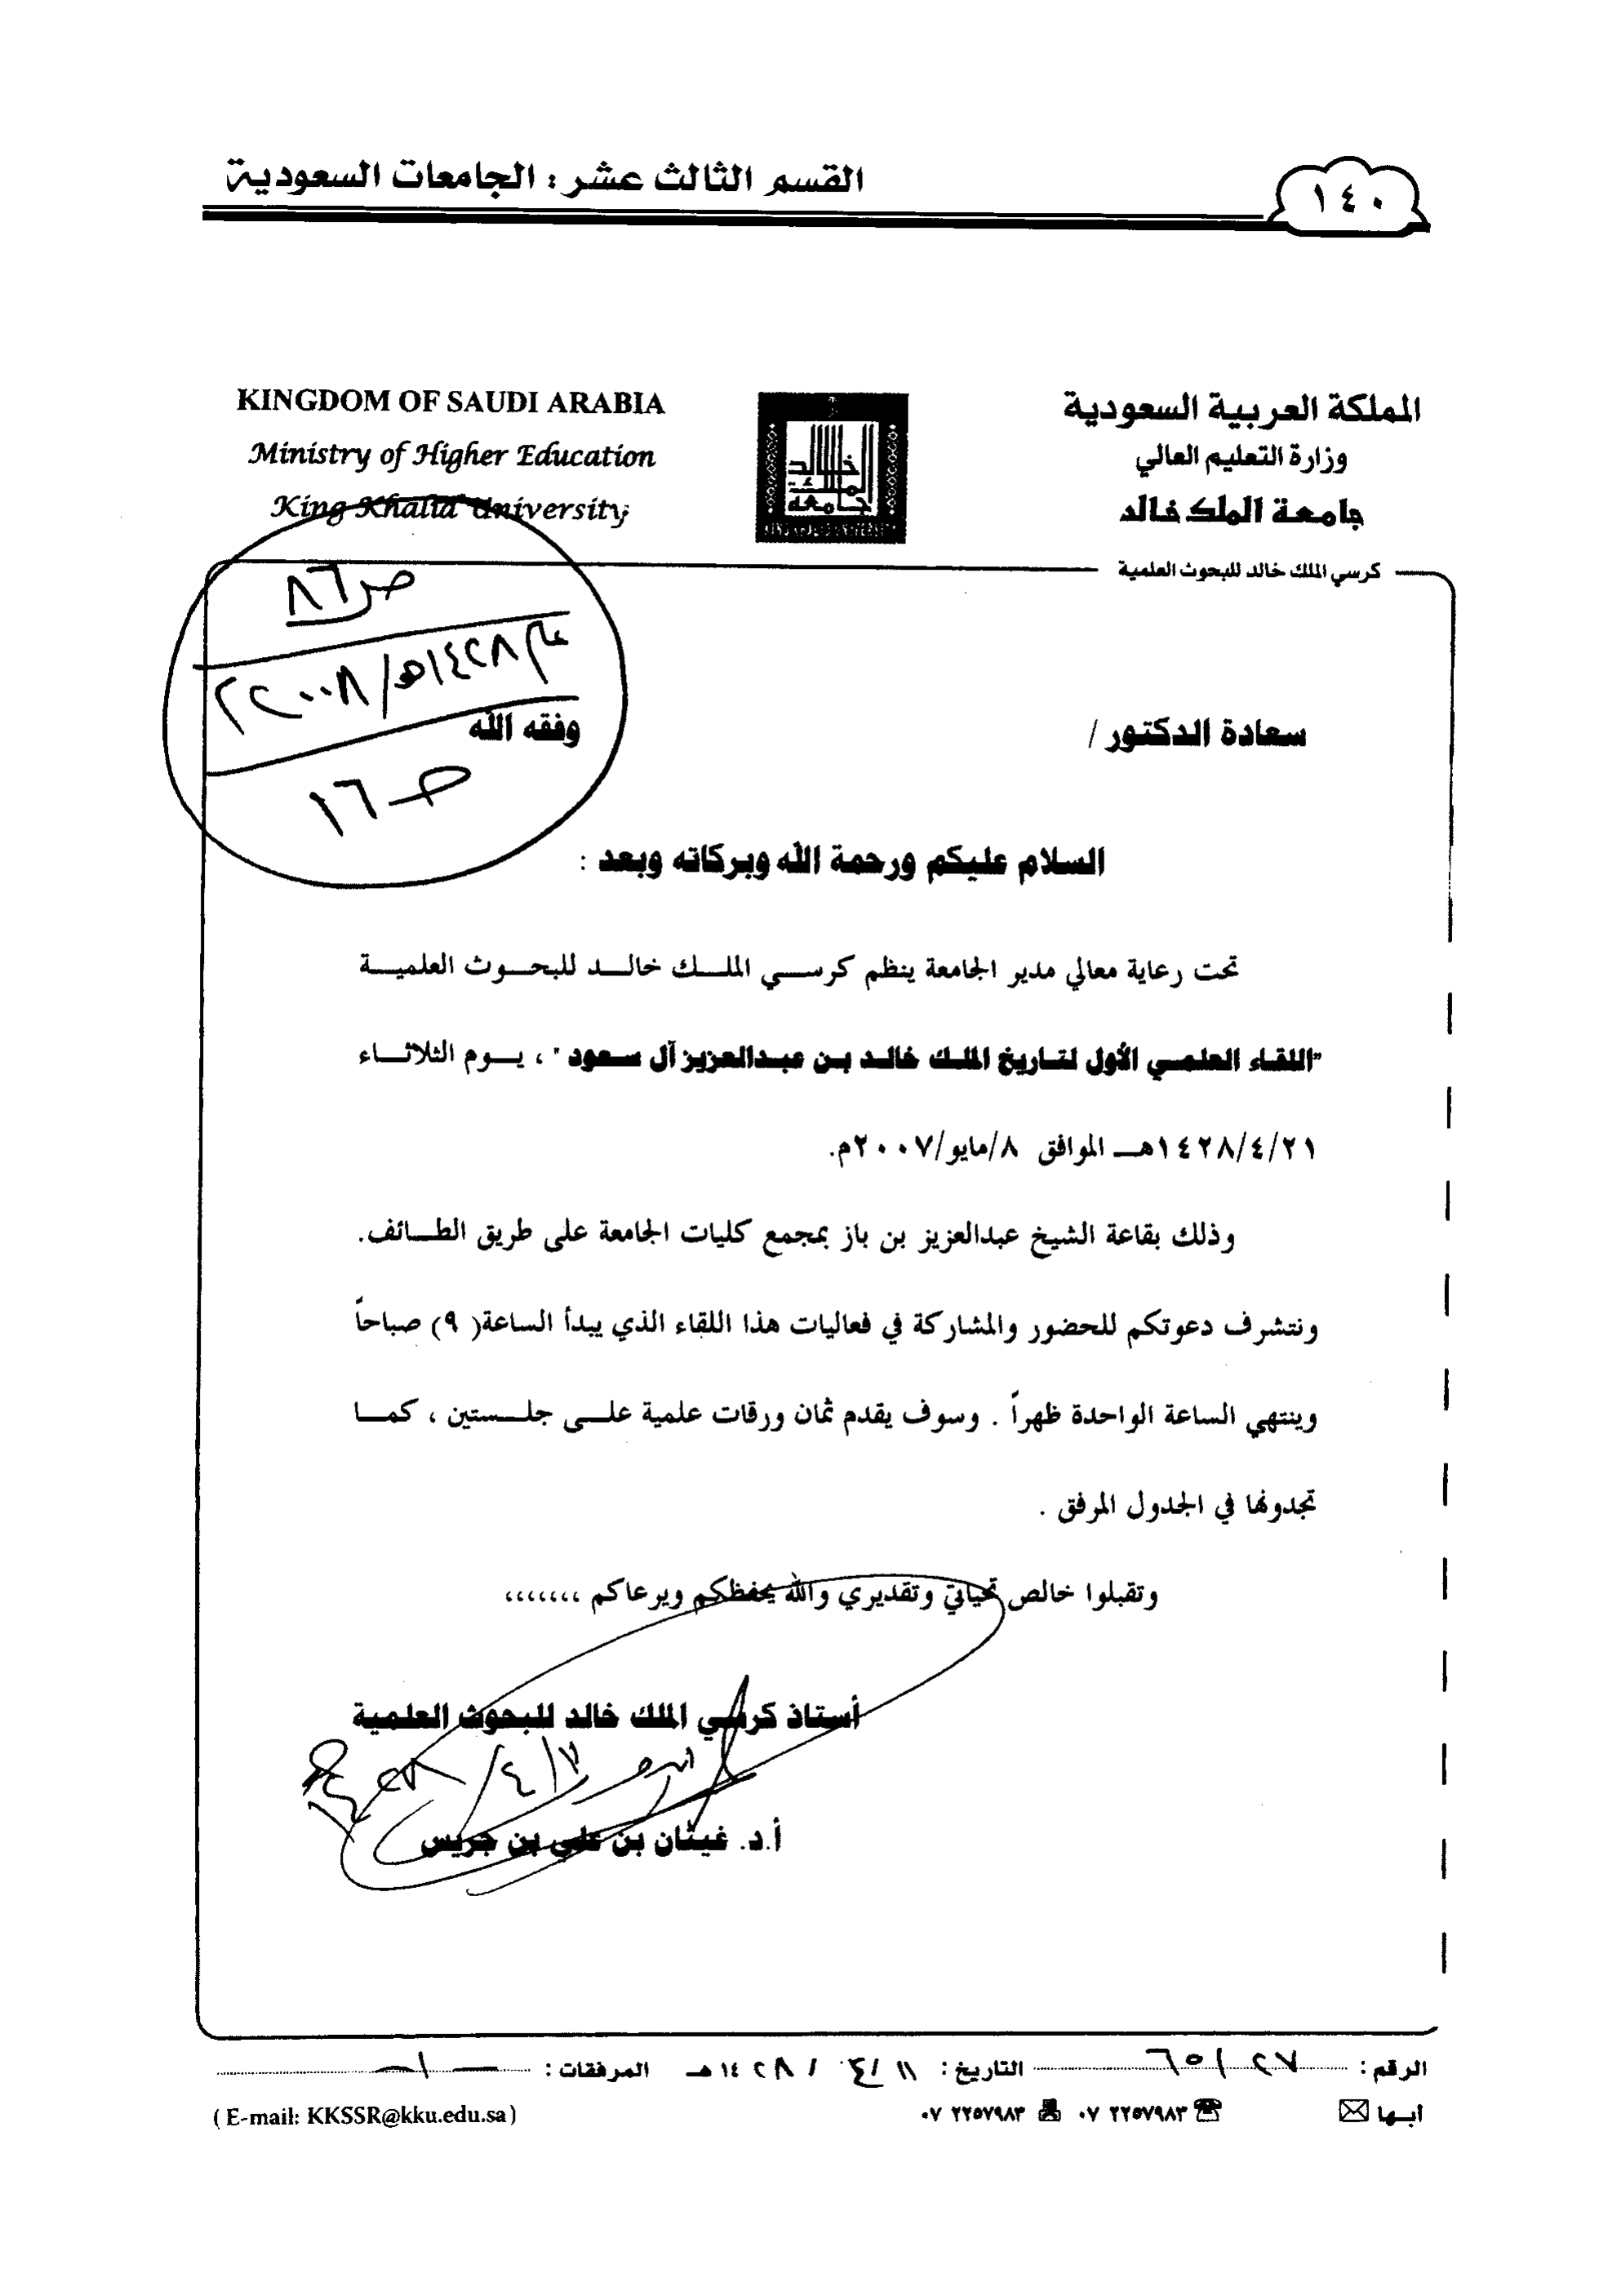 ١٤٠
القسم الثالث عشر: الجامعات السعودية
المملكة العربية السعودية
وزارة التعليم العالي
جامعة الملك خالد
KINGDOM OF SAUDI ARABIA
Ministry of Higher Education
King Khalid University
كرسي الملك خالد للبحوث العلمية
ص٨٦
ص١٦
سعادة الدكتور / وفقه الله
السلام عليكم ورحمة الله وبركاته وبعد :
تحت رعاية معالي مدير الجامعة ينظم كرسي الملك خالد للبحوث العلمية
"اللقاء العلمي الأول لتاريخ الملك خالد بن عبدالعزيز آل سعود" ، يوم الثلاثاء
١٤٢٨/٤/٢١هـ الموافق ٨/مايو/٢٠٠٧م.
وذلك بقاعة الشيخ عبدالعزيز بن باز بمجمع كليات الجامعة على طريق الطائف.
ونتشرف دعوتكم للحضور والمشاركة في فعاليات هذا اللقاء الذي يبدأ الساعة( ٩) صباحاً
وينتهي الساعة الواحدة ظهراً . وسوف يقدم ثمان ورقات علمية على جلستين ، كما
تجدونها في الجدول المرفق .
وتقبلوا خالص تحياتي وتقديري والله يحفظكم ويرعاكم ،،،،،،،
أستاذ كرسي الملك خالد للبحوث العلمية
أ.د. غيثان بن علي بن جريس
الرقم: التاريخ: ١١ /٤ / ١٤٢٨هـ المرفقات:
أبها ٠٧ ٢٢٥٧٩٨٣ ٠٧ ٢٢٥٧٩٨٣ ( E-mail: KKSSR@kku.edu.sa)